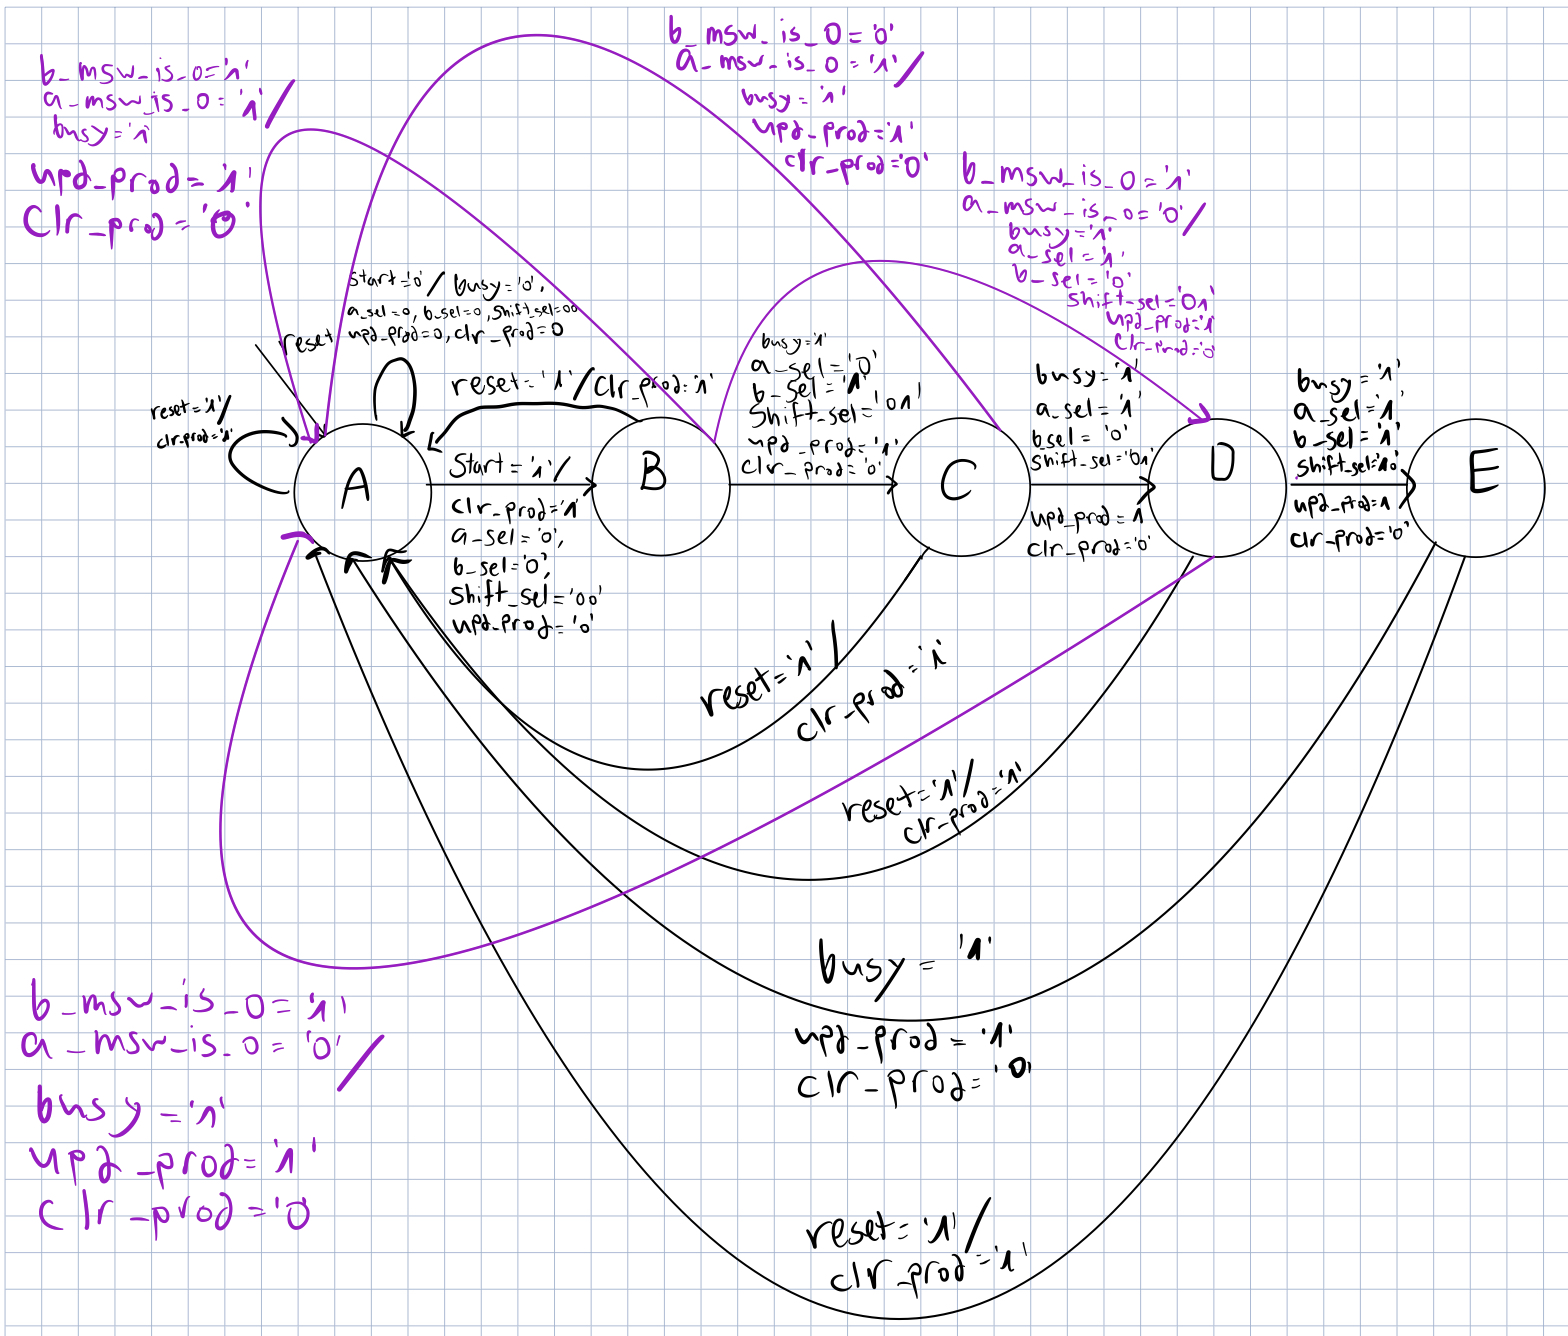 b_msw_is_0='1'
a_msw_is_0='1'/
busy='1'
upd_prod='1'
clr_prod='0'
b_msw_is_0='0'
a_msw_is_0='1'/
busy='1'
upd_prod='1'
clr_prod='0'
b_msw_is_0='1'
a_msw_is_0='0'/
busy='1'
a_sel='1'
b_sel='0'
shift_sel='01'
upd_prod='1
clr_prod='0'
start='0'/ busy='0',
a_sel=0, b_sel=0, shift_sel=00
upd_prod=0, clr_prod=0
reset
reset='1'/
clr_prod='1'
reset='1'/clr_prod='1'
busy='1'
a_sel='0'
b_sel='1'
shift_sel='01'
upd_prod='1'
clr_prod='0'
busy='1'
a_sel='1'
b_sel='0'
shift_sel='01'
upd_prod='1
clr_prod='0'
busy='1'
a_sel='1,
b_sel='1
shift_sel='10'
upd_prod=1
clr_prod='0'
A
B
C
D
E
Start='1'/
clr_prod='1'
a_sel='0',
b_sel='0',
shift_sel='00'
upd_prod='0'
reset='1'/
clr_prod='1'
reset='1'/
clr_prod='1'
busy='1'
upd_prod='1'
clr_prod='0'
b_msw_is_0='1'
a_msw_is_0='0'/
busy='1'
upd_prod='1'
clr_prod='0'
reset='1'/
clr_prod='1'